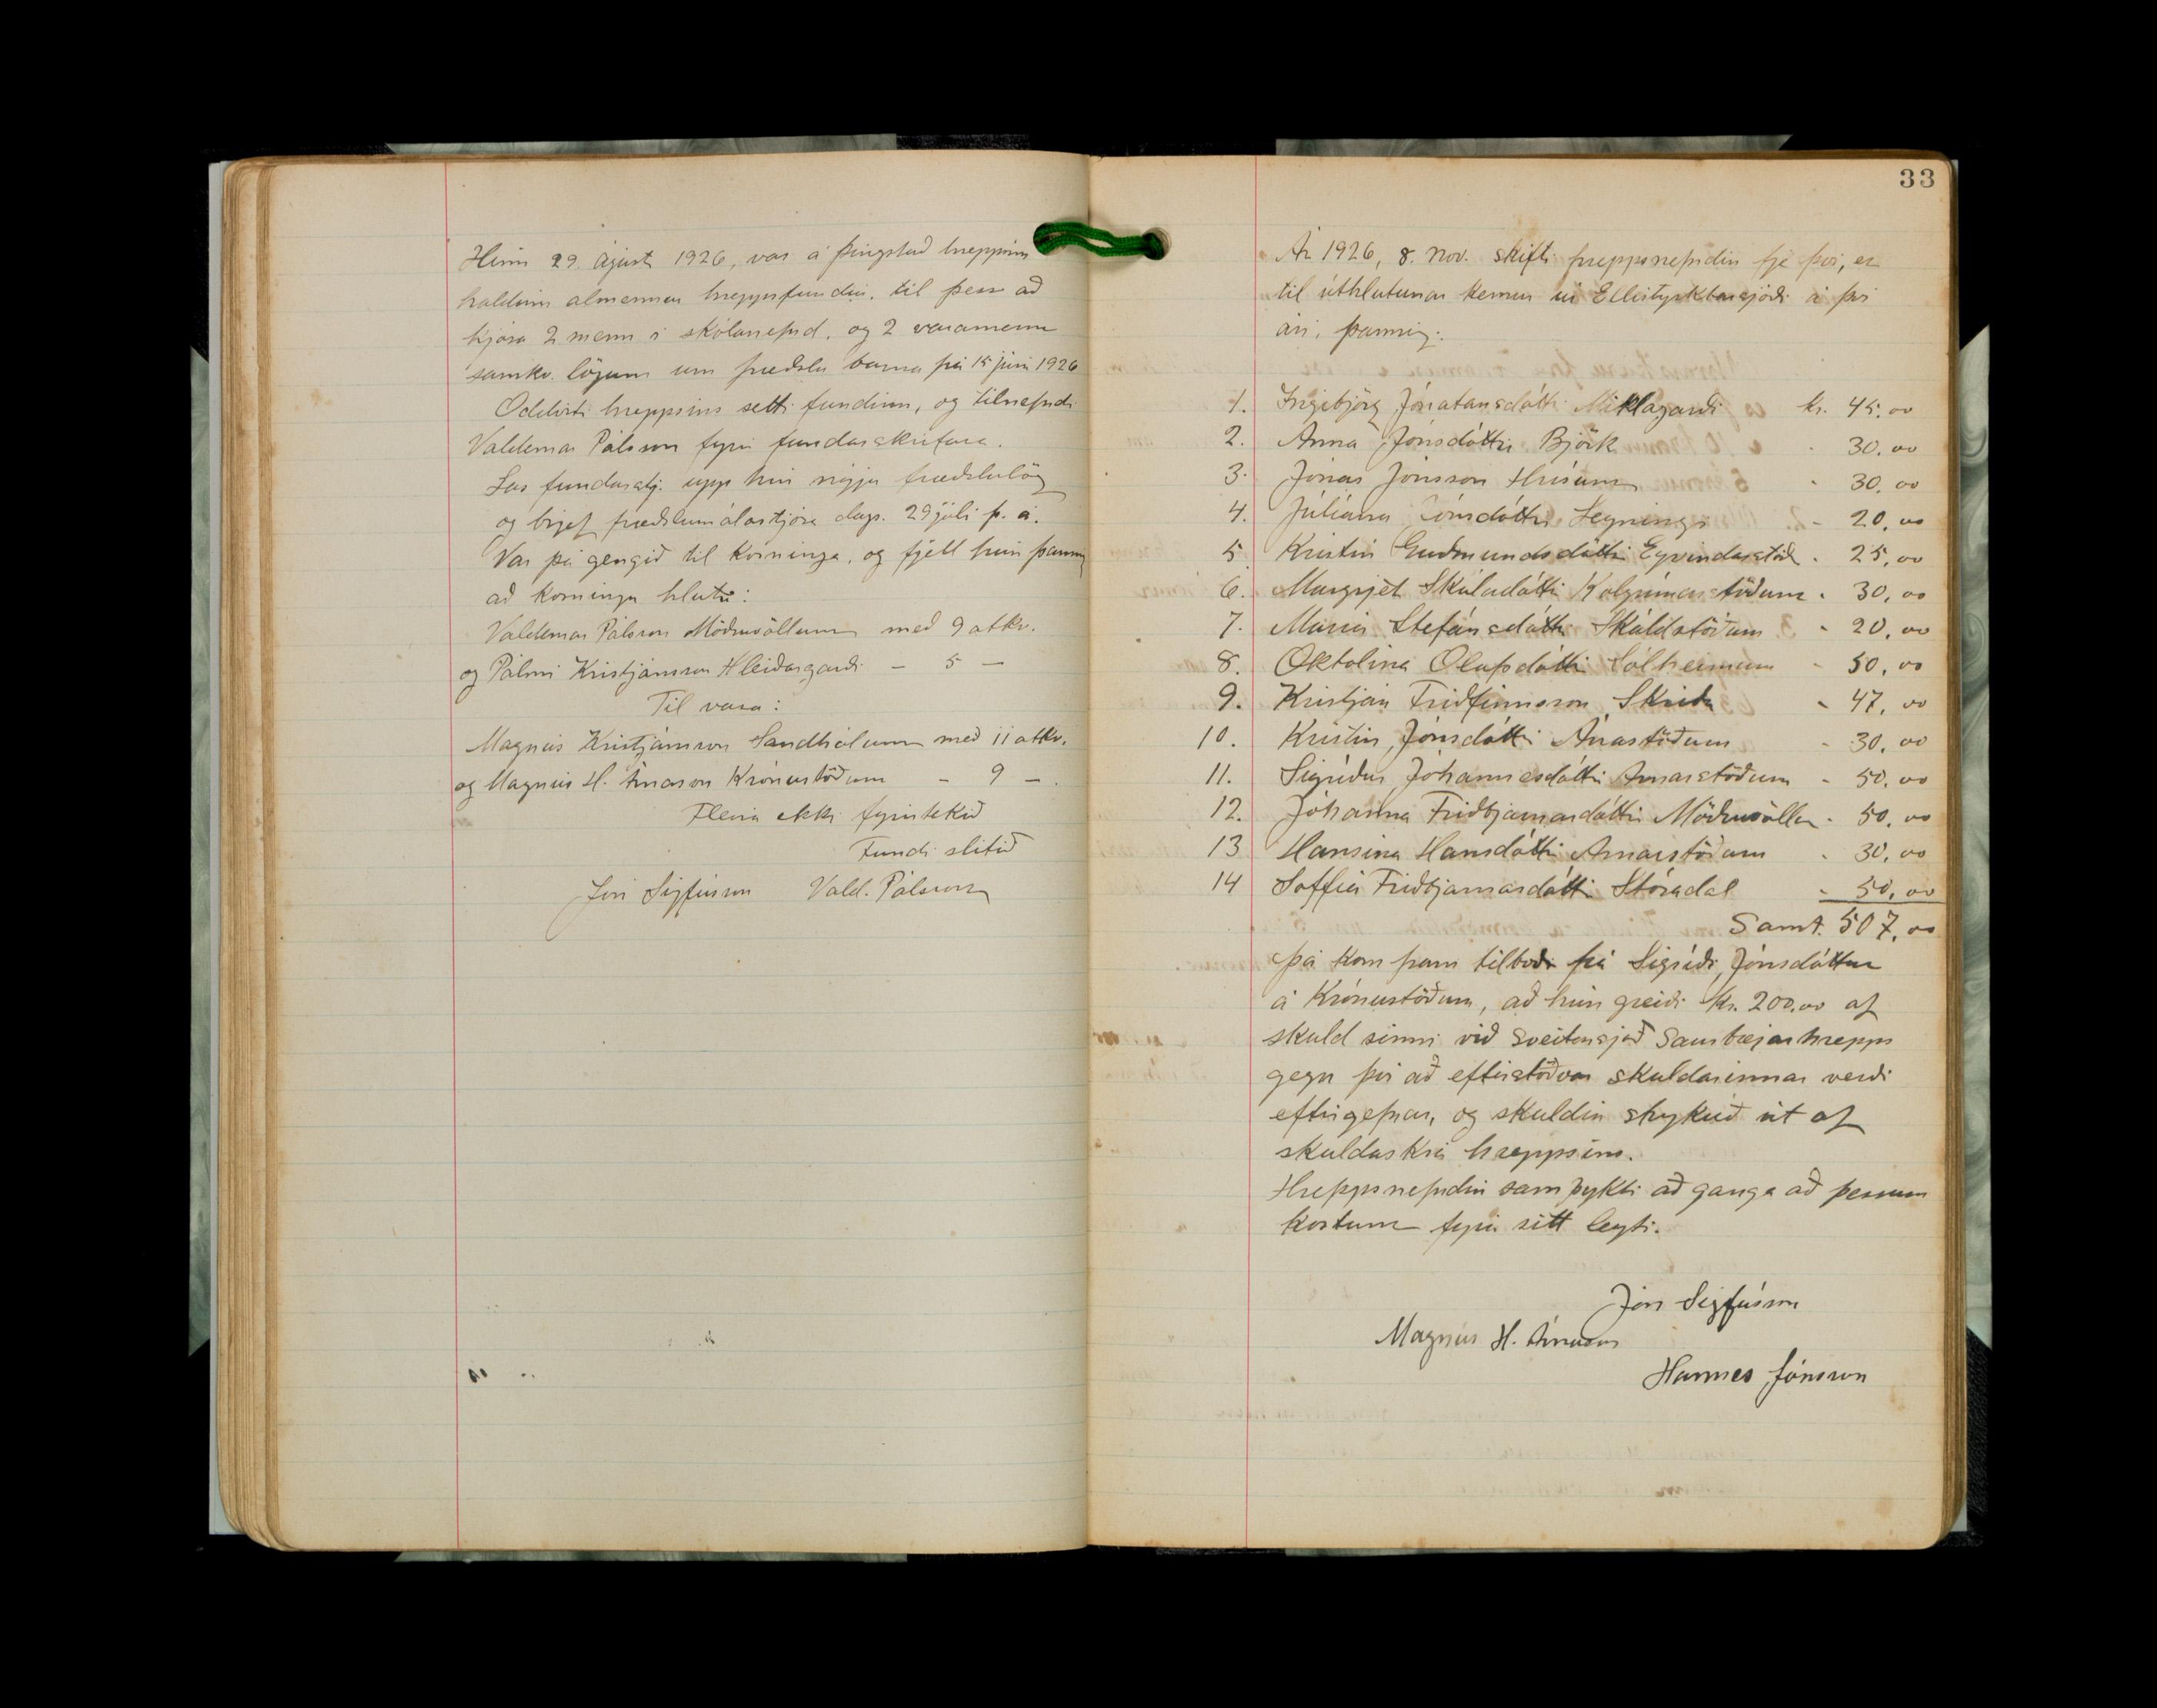 Hinn 29. ágúst 1926, var á þingstað hreppsins
haldinn almennur hreppsfundur, til þess að
kjósa 2 menn í skólanefnd, og 2 varamenn
samkv. lögum um fræðslu barna frá 15 júní 1926
Oddviti hreppsins setti fundinn, og tilnefndi
Valdemar Pálsson fyrir fundarskrifara.
Las fundarstj. upp hin nýju fræðslulög
og brjef fræðslumálastjóra dags. 29 júlí þ. á.
Var þá gengið til kosninga, og fjell hún þannig
að kosningu hlutu:
Valdemar Pálsson Möðruvöllum með 9 atkv.
og Pálmi Kristjánsson Hleiðargarði - 5 -
Til vara:
Magnús Kristjánsson Sandhólum með 11 atkv.
og Magnús H. Árnason Krónustöðum - 9 -
Fleira ekki fyrirtekið
Fundi slitið
Jón Sigfússon Vald. Pálsson
33
Ár 1926, 8. Nov. skifti hreppsnefndin fje því, er
til úthlutunar kemur úr Ellistyrktarsjóði á því
ári, þannig:
1. Ingibjörg Jónatansdóttir Miklagarði kr. 45.00
2. Anna Jónsdóttir Björk - 30.00
3. Jónas Jónsson Hrísum - 30.00
4. Júlíana Jónsdóttir Leyningi - 20.00
5 Kristín Guðmundsdóttir Eyvindarstöð. - 25.00
6. Margrjet Skúladóttir Kolgrímastöðum - 30.00
7. María Stefánsdóttir Skáldstöðum - 20.00
8. Oktolína Ólafsdóttir Sólheimum - 50.00
9. Kristján Friðfinnsson Skriðu - 47.00
10. Kristín Jónsdóttir Ánastöðum - 30.00
11. Sigríður Jóhannesdóttir Arnarstöðum - 50.00
12. Jóhanna Friðbjarnardóttir Möðruvöllum - 50.00
13 Hansína Hansdóttir Arnarstöðum - 30.00
14 Soffía Friðbjarnardóttir Stóradal - 50.00
Samt. 507.00
Þá kom fram tilboð frá Sigríði Jónsdóttur
á Krónustöðum, að hún greiði kr. 200.00 af
skuld sinni við sveitarsjóð Saurbæjarhrepps
gegn því að eftirstöðvar skuldarinnar verði
eftirgefnar, og skuldin strykuð út af
skuldaskrá hreppsins.
Hreppsnefndin samþykti að ganga að þessum
kostum fyrir sitt leyti.
Jón Sigfússon
Magnús H. Árnason
Hannes Jónsson